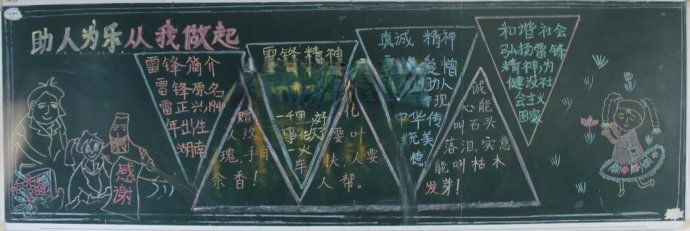 助人为乐从我做起
雷锋简介
雷锋原名
雷正兴
年出生
湖南
赠
人玫
瑰,手有
余香!
雷锋精神
事
一火
车
花
要叶
扶人要
人帮。
真诚 精神
爱憎
助人
中华 传
统美
德
诚
心能
叫石头
落泪,实意
能叫枯木
发芽!
和谐社会
弘扬雷锋
精神,为
健设社
会主义
国家
感谢